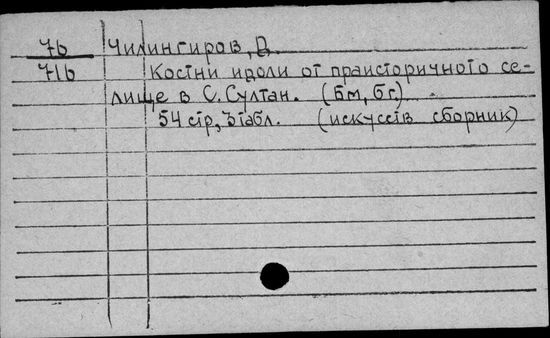 76 Чилингиров, А.
716 Костни идоли от праисторичното се-
лище в С. Султан. (бм, бг)
54 стр, 3 табл. (искусств сборник)